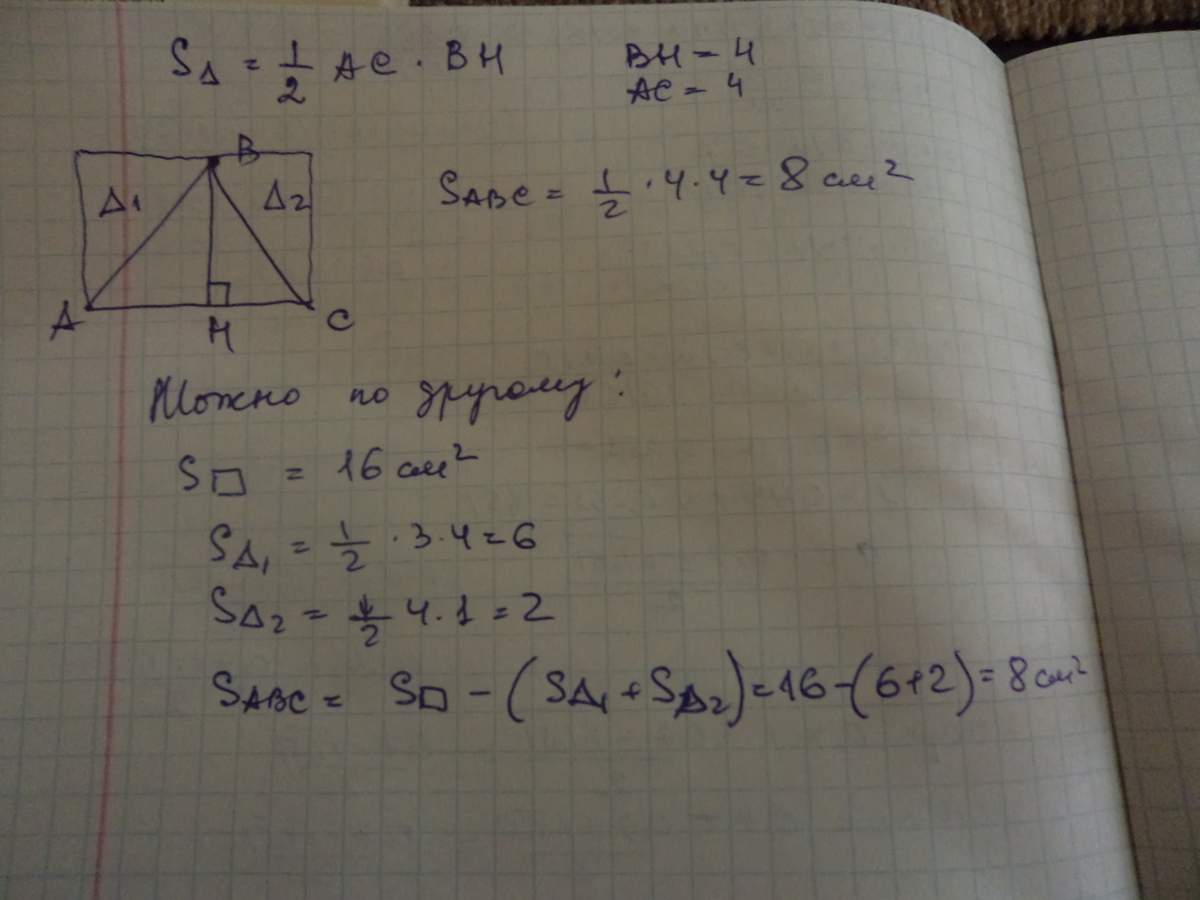 S△ = 1/2 AC · BH
BH = 4
AC = 4
B
△1
△2
A
H
C
SABC = 1/2 · 4 · 4 = 8 см²
Можно по другому:
S□ = 16 см²
S△1 = 1/2 · 3 · 4 = 6
S△2 = 1/2 4 · 1 = 2
SABC = S□ - (S△1 + S△2) = 16 - (6+2) = 8 см²